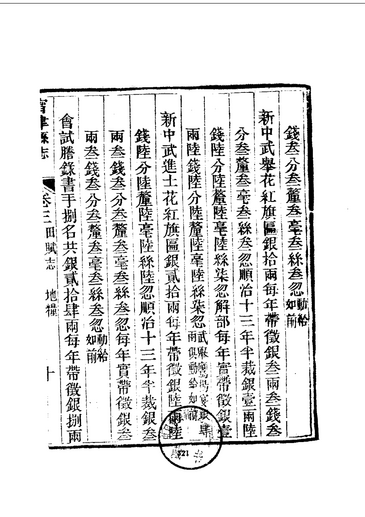 錢叁分叁釐叁毫叁絲叁忽動給如前
新中武舉花紅旗匾銀拾兩每年帶徵銀叁兩叁錢叁
分叁釐叁毫叁絲叁忽順治十三年半裁銀壹兩陸
錢陸分陸釐陸毫陸絲柒忽解部每年實帶徵銀壹
兩陸錢陸分陸釐陸毫陸絲柒忽
新中武進士花紅旗匾銀貳拾兩每年帶徵銀陸兩陸
錢陸分陸釐陸毫陸絲陸忽順治十三年半裁銀叁
兩叁錢叁分叁釐叁毫叁絲叁忽每年實帶徵銀叁
兩叁錢叁分叁釐叁毫叁絲叁忽動給如前
會試謄錄書手捌名共銀貳拾肆兩每年帶徵銀捌兩
津縣志
卷三
田賦志
地糧
十